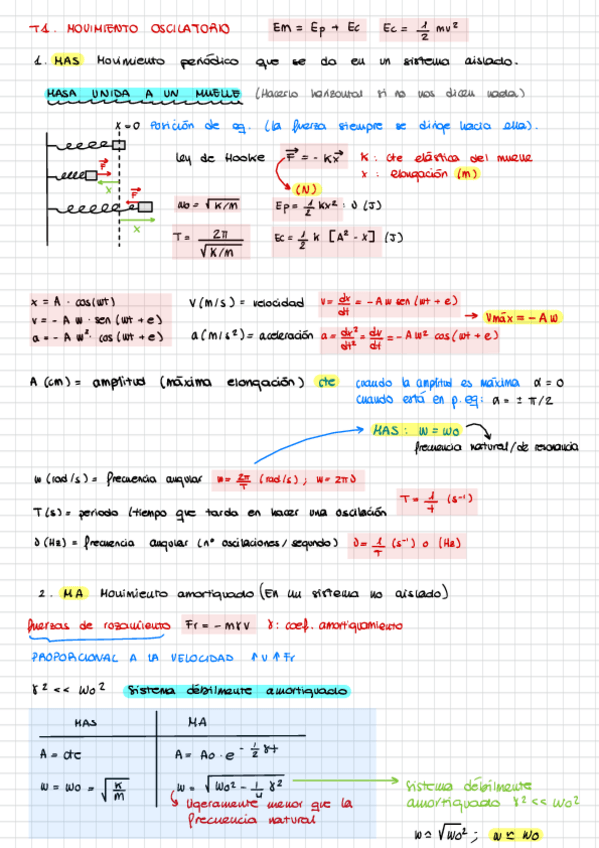 T1. MOVIMIENTO OSCILATORIO Em = Ep + Ec Ec = 1/2 mv²
1. MAS Movimiento periódico que se da en un sistema aislado.
MASA UNIDA A UN MUELLE (Hacerlo horizontal si no nos dicen nada)
x=0 Posición de eq. (la fuerza siempre se dirige hacia ella).
Ley de Hooke F = - Kx K: cte elástica del muelle
x: elongación (m)
(N)
F
x
F
x
Wo = √K/m Ep = 1/2 Kx² : J (J)
T = 2π/√K/m Ec = 1/2 K [A² - x] (J)
x = A · cos(wt) V (m/s) = velocidad v = dx/dt = - A w sen (wt + e)
v = - A w · sen (wt + e) → Vmáx = - A w
a = - A w² · cos (wt + e) a (m/s²) = aceleración a = dv²/dt² = dv/dt = - A w² cos (wt + e)
A (cm) = amplitud (máxima elongación) cte cuando la amplitud es máxima α = 0
cuando está en p. eq: α = ± π/2
MAS: w = wo
frecuencia natural/de resonancia
w (rad/s) = frecuencia angular w = 2π/T (rad/s) ; w = 2πν
T (s) = periodo (tiempo que tarda en hacer una oscilación T = 1/f (s⁻¹)
ν (Hz) = frecuencia angular (nº oscilaciones / segundo) ν = 1/T (s⁻¹) o (Hz)
2. MA Movimiento amortiguado (En un sistema no aislado)
fuerzas de rozamiento Fr = - mγv γ: coef. amortiguamiento
PROPORCIONAL A LA VELOCIDAD ↑v ↑Fr
γ² << Wo² Sistema débilmente amortiguado
MAS MA
A = cte A = Ao · e^(- 1/2 γt)
w = wo = √K/m w = √Wo² - 1/4 γ² → Sistema débilmente
amortiguado γ² << Wo²
Ligeramente menor que la
frecuencia natural
w ≃ √Wo² ; w ≃ wo